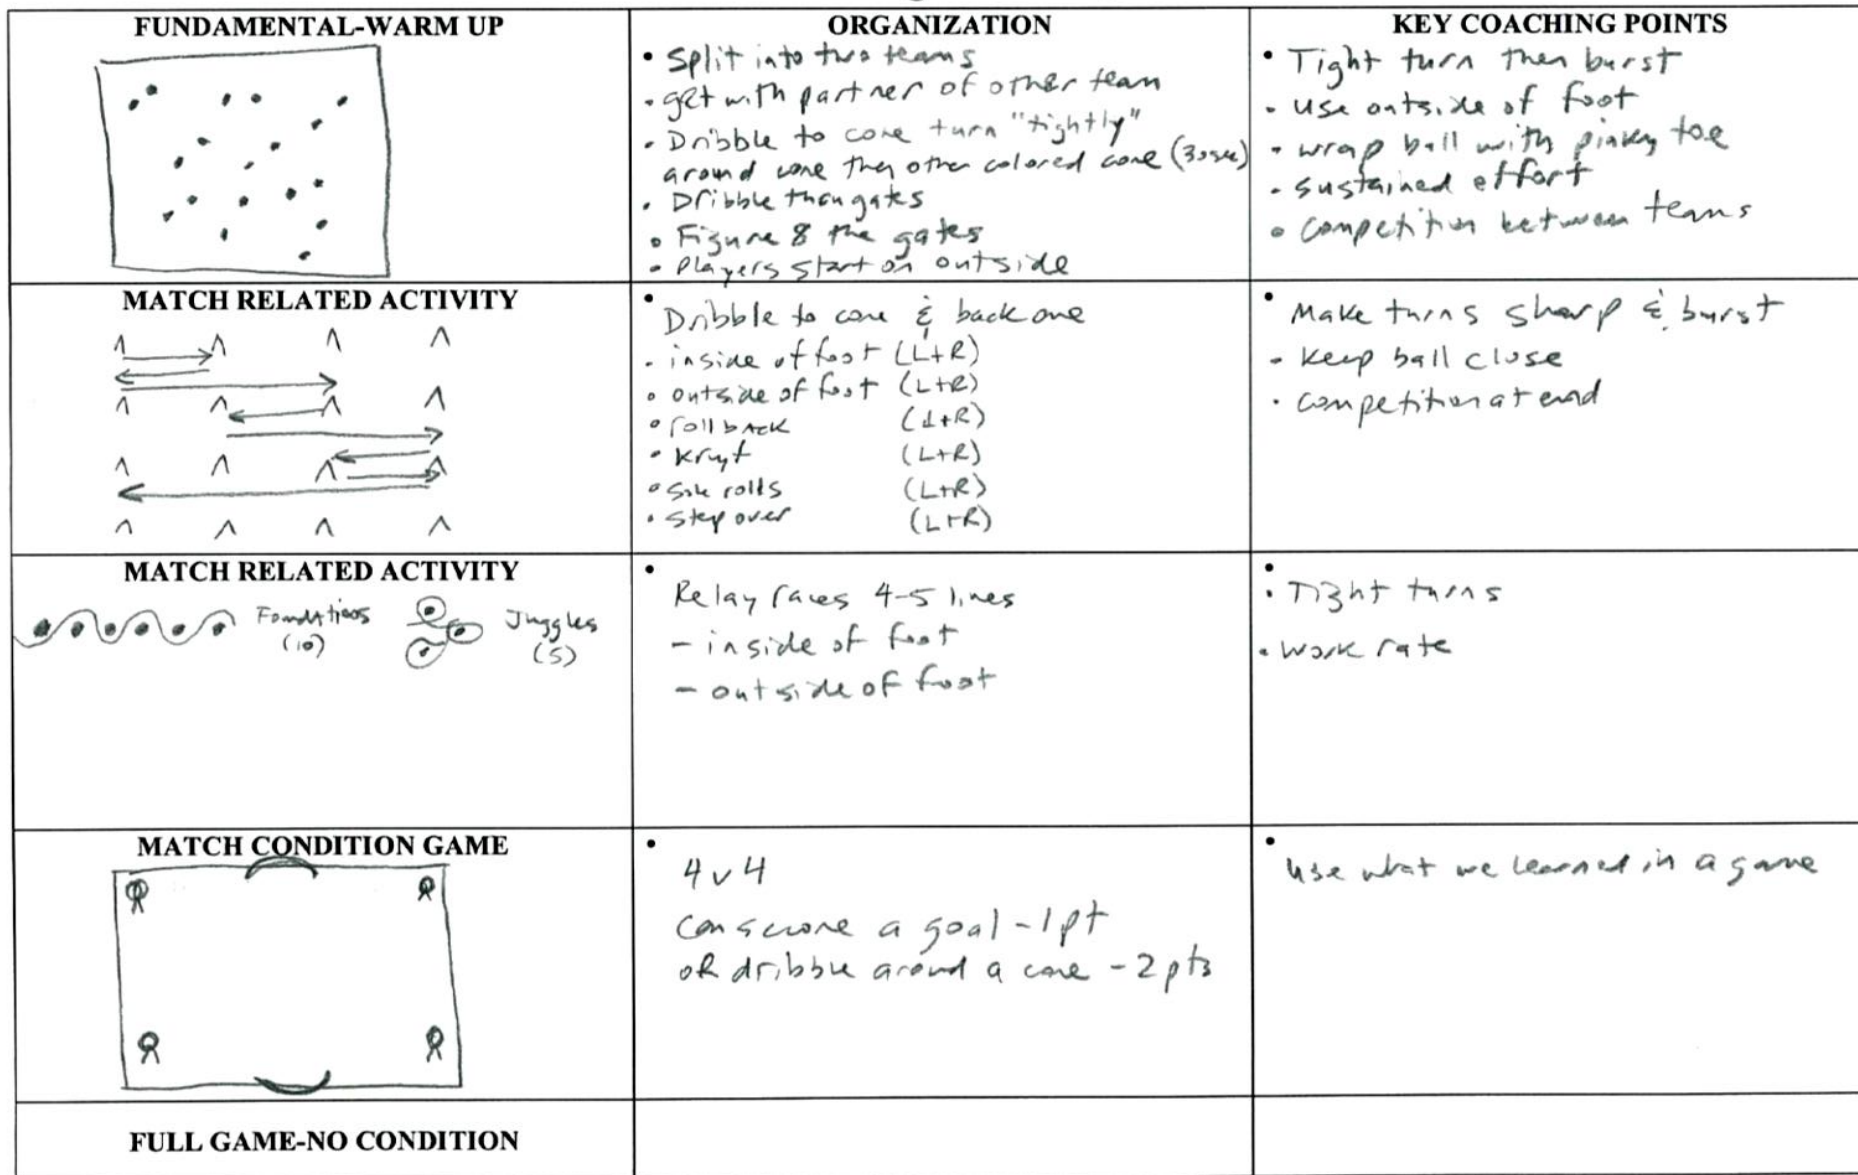 FUNDAMENTAL-WARM UP
ORGANIZATION
• Split into two teams
• get with partner of other team
• Dribble to cone turn "tightly"
around cone then other colored cone (30sec)
• Dribble thru gates
• Figure 8 the gates
• Players start on outside
KEY COACHING POINTS
• Tight turn then burst
• use outside of foot
• wrap ball with pinky toe
• sustained effort
• competition between teams
MATCH RELATED ACTIVITY
• Dribble to cone & back one
• inside of foot (L+R)
• outside of foot (L+R)
• roll back (L+R)
• Kruyf (L+R)
• Sole rolls (L+R)
• Step over (L+R)
• Make turns sharp & burst
• Keep ball close
• competition at end
MATCH RELATED ACTIVITY
Foundations
(10)
Juggles
(5)
• Relay races 4-5 lines
- inside of foot
- outside of foot
• Tight turns
• work rate
MATCH CONDITION GAME
• 4v4
Can score a goal - 1pt
OR dribble around a cone - 2pts
• Use what we learned in a game
FULL GAME-NO CONDITION